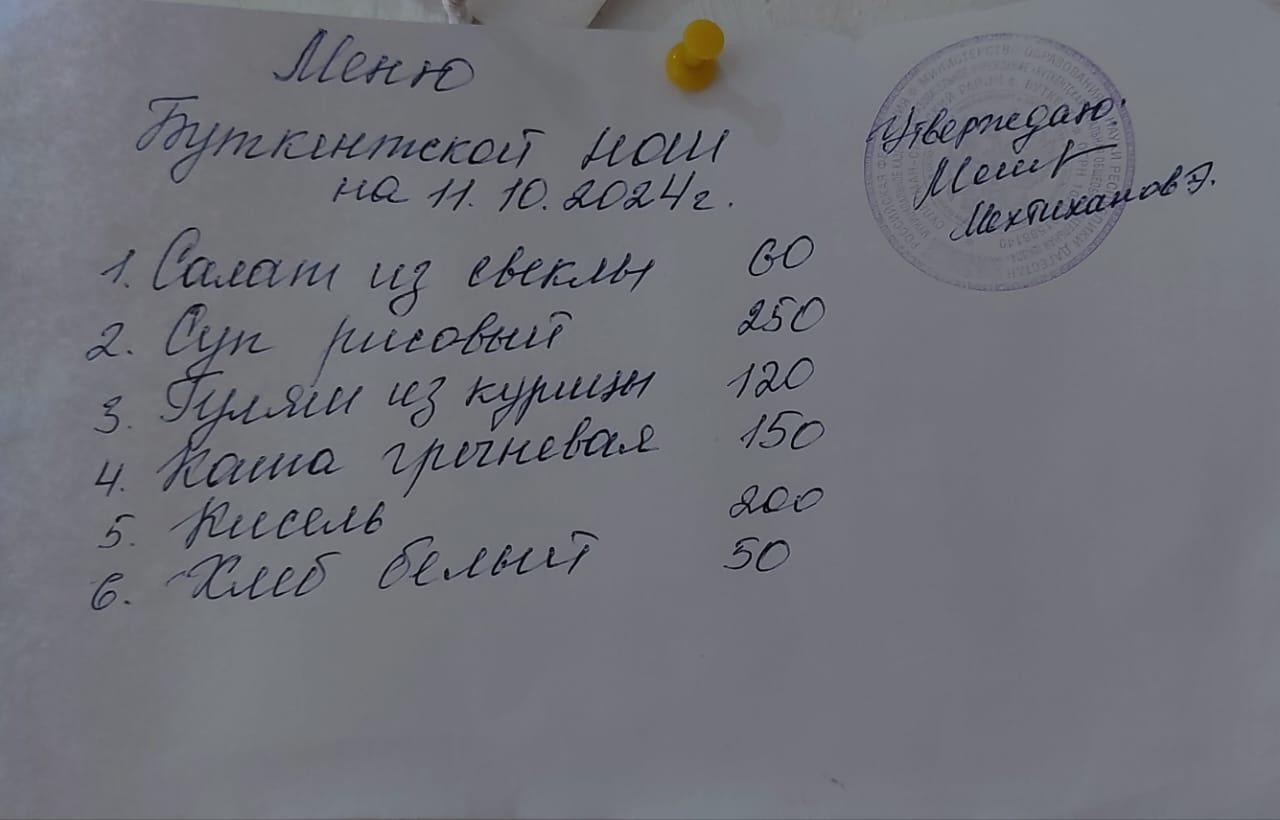 Меню
Буткентской НОШ
на 11.10.2024г.
1. Салат из свеклы 60
2. Суп рисовый 250
3. Гуляш из курицы 120
4. Каша гречневая 150
5. Кисель 200
6. Хлеб белый 50
Утверждаю:
Мехтиханов Э.
РОССИЙСКАЯ ФЕДЕРАЦИЯ МИНИСТЕРСТВО ОБРАЗОВАНИЯ И НАУКИ РЕСПУБЛИКИ ДАГЕСТАН